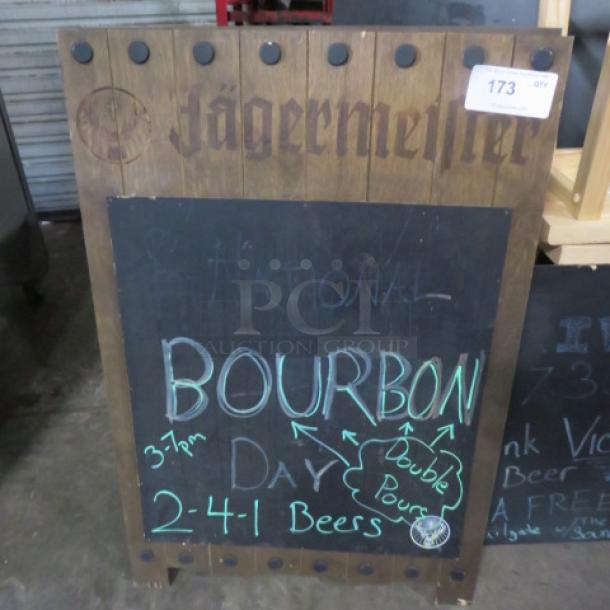 173 QTY
Jägermeister
NATIONAL
PCI
AUCTION GROUP
BOURBON
3-7pm
DAY
Double
Pours
2-4-1 Beers
nk Vic
Beer
A FREE